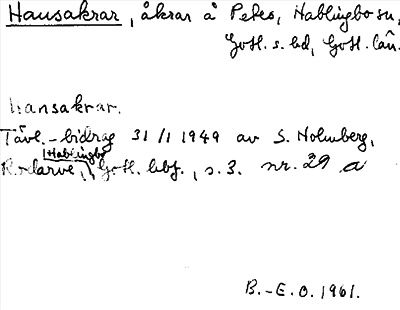 Hansakrar, åkrar å Petes, Hablingbo sn,
Gotl. s. hd, Gotl. län.
Hansakrar.
Tävl.-bidrag 31/1 1949 av S. Holmberg,
Hablingbo
Rodarve, Gotl. hbf., s. 3. nr. 29 a
B.-E.O. 1961.